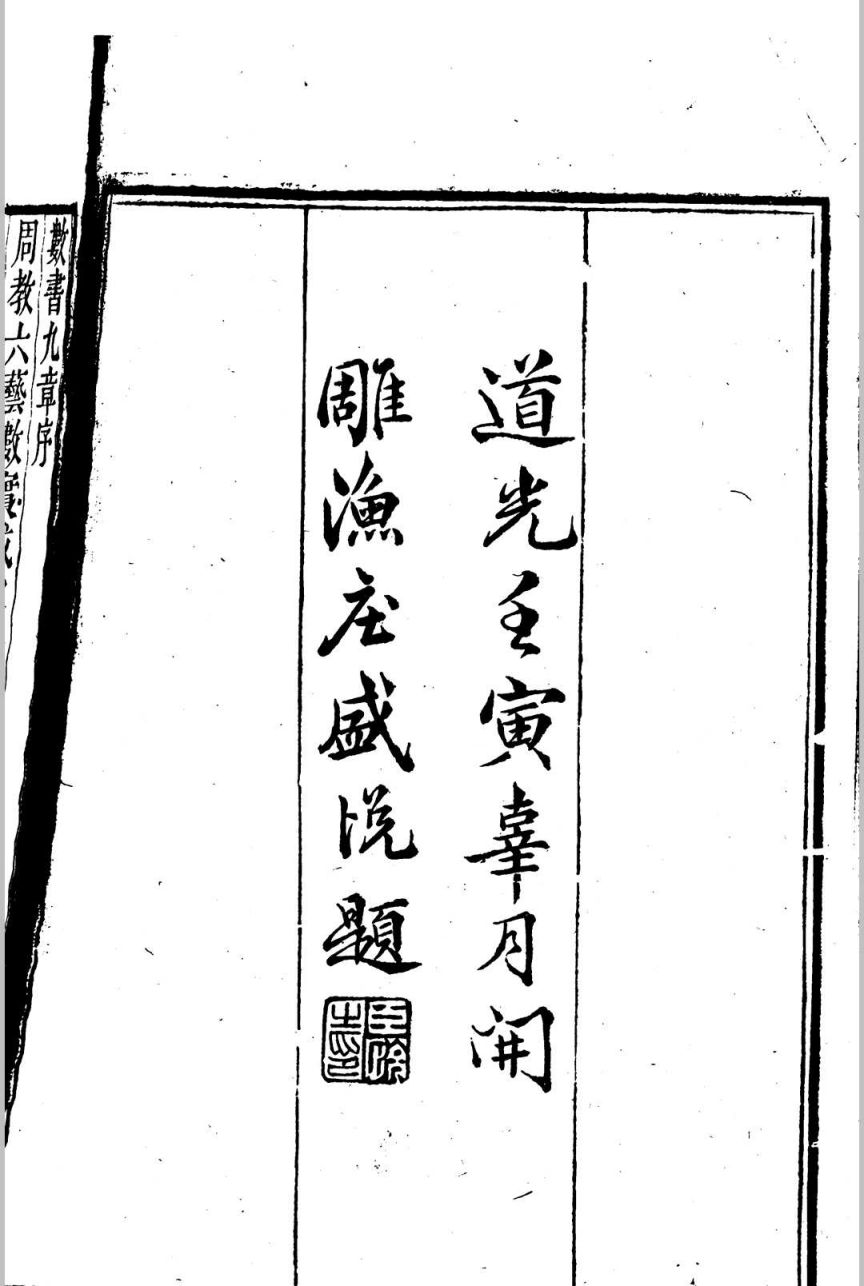 道光壬寅辜月開
雕漁庄盛悦題
數書九章序
周教六藝數實成